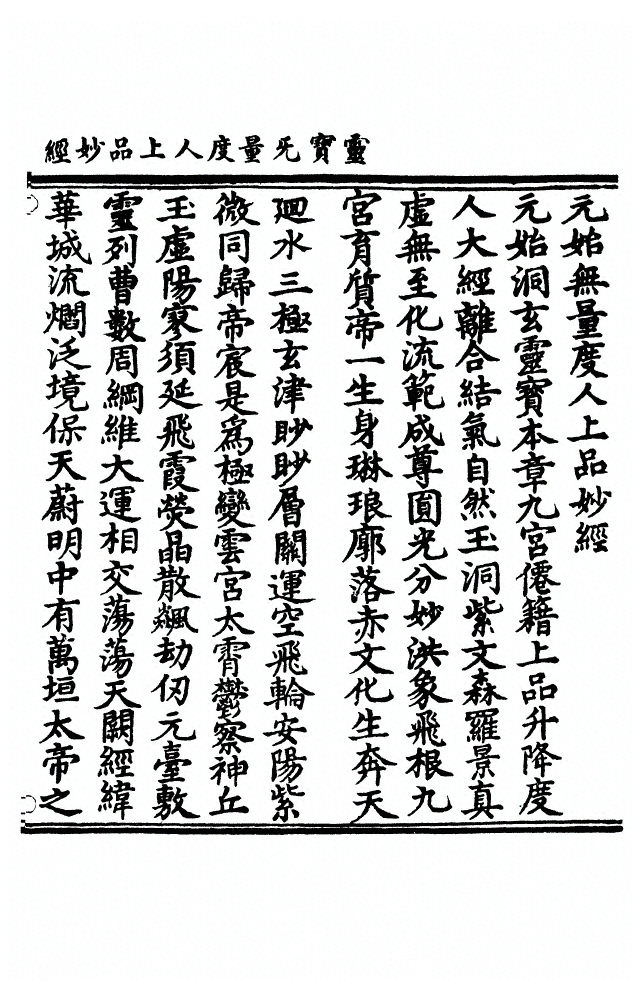 靈寶无量度人上品妙經
元始無量度人上品妙經
元始洞玄靈寶本章九宮僊籍上品升降度
人大經離合結氣自然玉洞紫文森羅景真
虛無至化流範成尊圓光分妙洪象飛根九
宮育質帝一生身琳琅廓落赤文化生奔天
廻水三極玄津眇眇層關運空飛輪安陽紫
微同歸帝宸是爲極變雲宮太霄鬱察神丘
玉虛陽寥須延飛霞熒晶散飈劫仞元臺敷
靈列曹數周綱維大運相交蕩蕩天闕經緯
華城流爛泛境保天蔚明中有萬垣太帝之